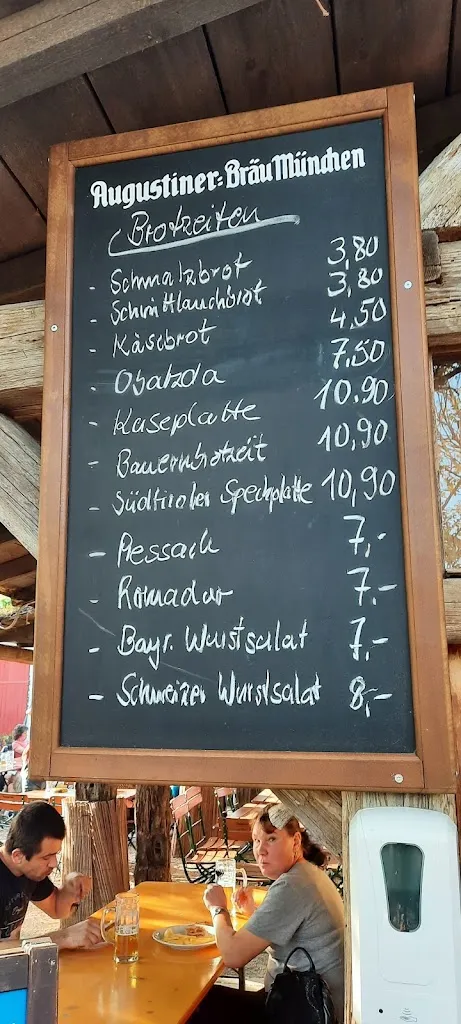 Augustiner-Bräu München
Brotzeiten
- Schmalzbrot 3,80
- Schnittlauchbrot 3,80
- Käsebrot 4,50
- Obatzda 7,50
- Käseplatte 10.90
- Bauernbrotzeit 10,90
- Südtiroler Speckplatte 10,90
- Pressack 7,-
- Romadur 7.-
- Bayr. Wurstsalat 7,-
- Schweizer Wurstsalat 8,-